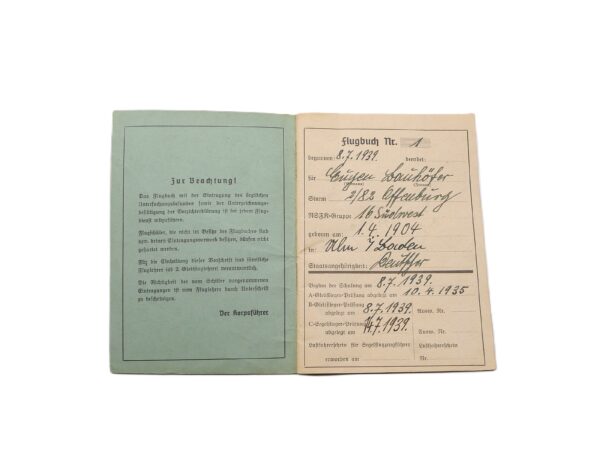 Zur Beachtung!
Das Flugbuch mit der Eintragung des täglichen
Unterkunftszustandes sowie der Unterzeichnungs-
bestätigung der Verzichterklärung ist bei jedem Flug-
dienst mitzuführen.
Flugschüler, die nicht im Besitze des Flugbuches und
deren Eintragungsvermerk besitzen, dürfen nicht
geschult werden.
Für die Einhaltung dieser Vorschrift sind sämtliche
Fluglehrer und Z. Gleitfluglehrer verantwortlich.
Die Richtigkeit der vom Schüler vorgenommenen
Eintragungen ist vom Fluglehrer durch Unterschrift
zu bescheinigen.
Der Korpsführer
Flugbuch Nr. 1
begonnen: 8.7.1939. beendet:
für Eugen Bauhöfer
(Vorname) (Zuname)
Sturm 2/82 Offenburg
NSFK-Gruppe 16 Südwest
geboren am: 1.4.1904
in: Ulm i/Baden
Staatsangehörigkeit:
Beginn der Schulung am 8.7.1939.
A-Gleitflieger-Prüfung abgelegt am 10.4.1935
B-Gleitflieger-Prüfung
abgelegt am 8.7.1939. Ausw. Nr.
C-Segelflieger-Prüfung
abgelegt am 14.7.1939. Ausw. Nr.
Luftfahrerschein für Segelflugzeugführer
erworben am Luftfahrerschein
Nr.